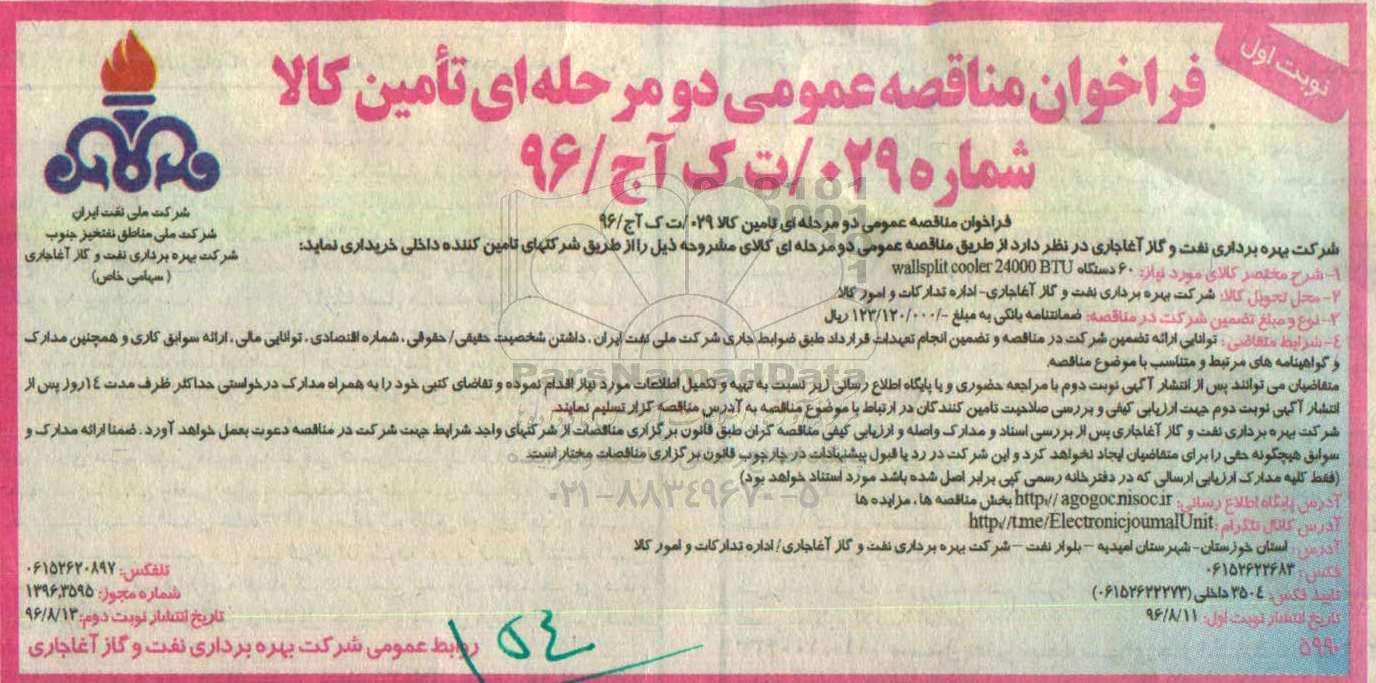 نوبت اول
فراخوان مناقصه عمومی دو مرحله ای تأمین کالا
شماره ۰۲۹/ت ک آج/۹۶
شرکت ملی نفت ایران
شرکت ملی مناطق نفتخیز جنوب
شرکت بهره برداری نفت و گاز آغاجاری
(سهامی خاص)
فراخوان مناقصه عمومی دو مرحله ای تامین کالا ۰۲۹/ت ک آج/۹۶
شرکت بهره برداری نفت و گاز آغاجاری در نظر دارد از طریق مناقصه عمومی دو مرحله ای کالای مشروحه ذیل را از طریق شرکتهای تامین کننده داخلی خریداری نماید:
۱- شرح مختصر کالای مورد نیاز: ۶۰ دستگاه wallsplit cooler 24000 BTU
۲- محل تحویل کالا: شرکت بهره برداری نفت و گاز آغاجاری- اداره تدارکات و امور کالا
۳- نوع و مبلغ تضمین شرکت در مناقصه: ضمانتنامه بانکی به مبلغ -/۱۲۳/۱۲۰/۰۰۰ ریال
٤- شرایط متقاضی: توانایی ارائه تضمین شرکت در مناقصه و تضمین انجام تعهدات قرارداد طبق ضوابط جاری شرکت ملی نفت ایران، داشتن شخصیت حقیقی/ حقوقی، شماره اقتصادی، توانایی مالی، ارائه سوابق کاری و همچنین مدارک
و گواهینامه های مرتبط و متناسب با موضوع مناقصه.
متقاضیان می توانند پس از انتشار آگهی نوبت دوم با مراجعه حضوری و یا پایگاه اطلاع رسانی زیر نسبت به تهیه و تکمیل اطلاعات مورد نیاز اقدام نموده و تقاضای کتبی خود را به همراه مدارک درخواستی حداکثر ظرف مدت ۱٤روز پس از
انتشار آگهی نوبت دوم جهت ارزیابی کیفی و بررسی صلاحیت تامین کنندگان در ارتباط با موضوع مناقصه به آدرس مناقصه گزار تسلیم نمایند.
شرکت بهره برداری نفت و گاز آغاجاری پس از بررسی اسناد و مدارک واصله و ارزیابی کیفی مناقصه گران طبق قانون برگزاری مناقصات از شرکتهای واجد شرایط جهت شرکت در مناقصه دعوت بعمل خواهد آورد. ضمنا ارائه مدارک و
سوابق هیچگونه حقی را برای متقاضیان ایجاد نخواهد کرد و این شرکت در رد یا قبول پیشنهادات در چارچوب قانون برگزاری مناقصات مختار است.
(فقط کلیه مدارک ارزیابی ارسالی که در دفترخانه رسمی کپی برابر اصل شده باشد مورد استناد خواهد بود)
آدرس پایگاه اطلاع رسانی: http:// agogoc.nisoc.ir بخش مناقصه ها، مزایده ها
آدرس کانال تلگرام: http://t.me/ElectronicjournalUnit
آدرس: استان خوزستان- شهرستان امیدیه - بلوار نفت - شرکت بهره برداری نفت و گاز آغاجاری/ اداره تدارکات و امور کالا
فکس: ۰۶۱۵۲۶۲۲۶۸۳
تلفکس: ۰۶۱۵۲۶۲۰۸۹۷
تایید فکس: ۳۵۰٤ داخلی (۰۶۱۵۲۶۲۲۲۷۳)
شماره مجوز: ۱۳۹۶,۳۵۹۵
تاریخ انتشار نوبت اول: ۹۶/۸/۱۱
تاریخ انتشار نوبت دوم: ۹۶/۸/۱۳
۵۹۹۰
روابط عمومی شرکت بهره برداری نفت و گاز آغاجاری
ParsNamadData
۰۲۱-۸۸۳۴۹۶۷۰-۵